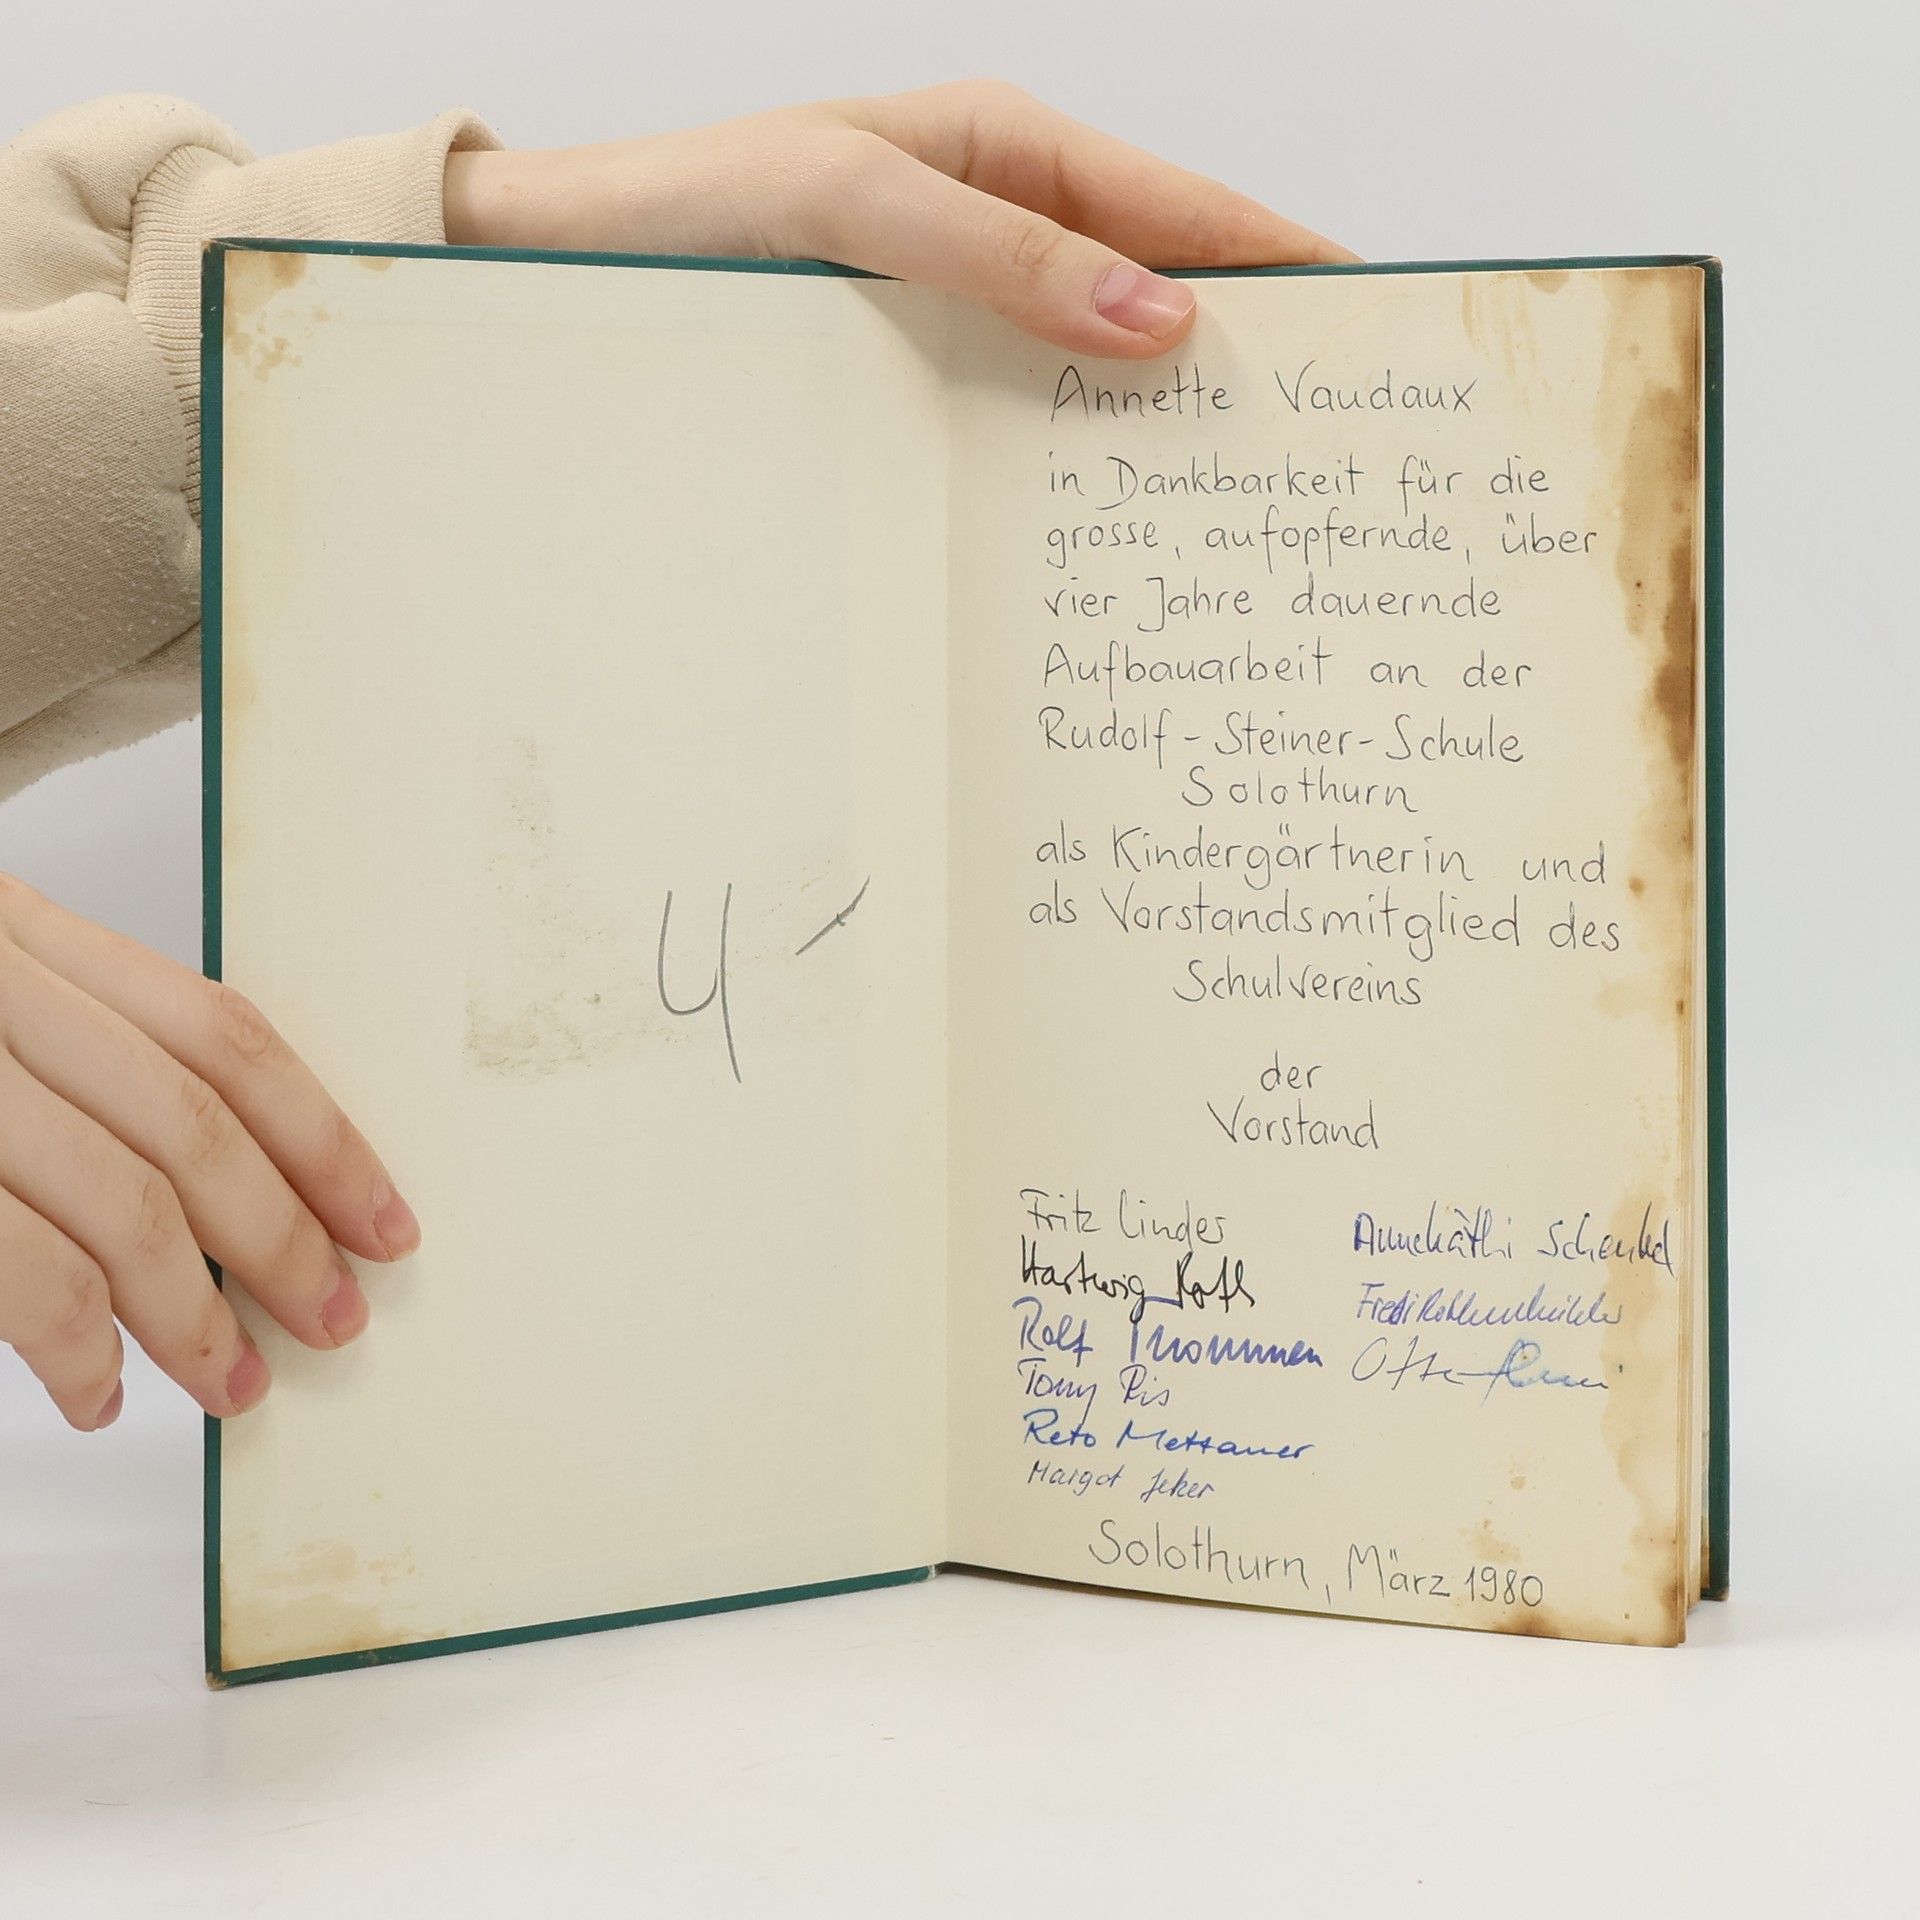 4 -
Annette Vaudaux
in Dankbarkeit für die
grosse, aufopfernde, über
vier Jahre dauernde
Aufbauarbeit an der
Rudolf-Steiner-Schule
Solothurn
als Kindergärtnerin und
als Vorstandsmitglied des
Schulvereins
der
Vorstand
Fritz Linder
Hartwig Roth
Rolf Thommen
Tony Ris
Reto Mettauer
Margot Jeker
Annekäthi Schenkel
Fredi
Otto
Solothurn, März 1980